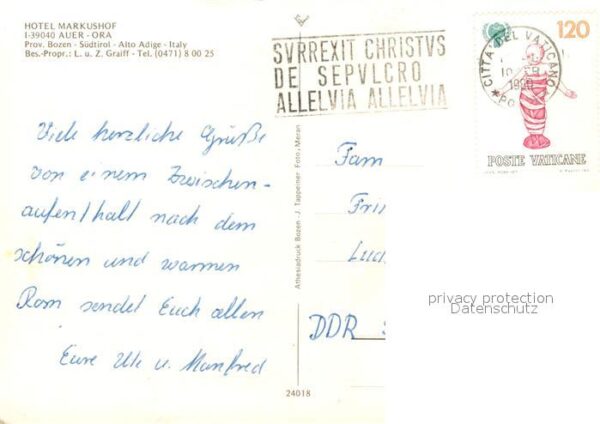 HOTEL MARKUSHOF
I-39040 AUER - ORA
Prov. Bozen - Südtirol - Alto Adige - Italy
Bes.-Propr.: L. u. Z. Graiff - Tel. (0471) 8 00 25
SVRREXIT CHRISTVS
DE SEPVLCRO
ALLELVIA ALLELVIA
120
CITTA' DEL VATICANO
POSTE VATICANE
Viele herzliche Grüße
von einem Zwischen-
aufenthalt nach dem
schönen und warmen
Rom sendet Euch allen
Eure Ute u. Manfred
Athesiadruck Bozen - J. Tappeiner Foto, Meran
24018
Fam
DDR
privacy protection
Datenschutz